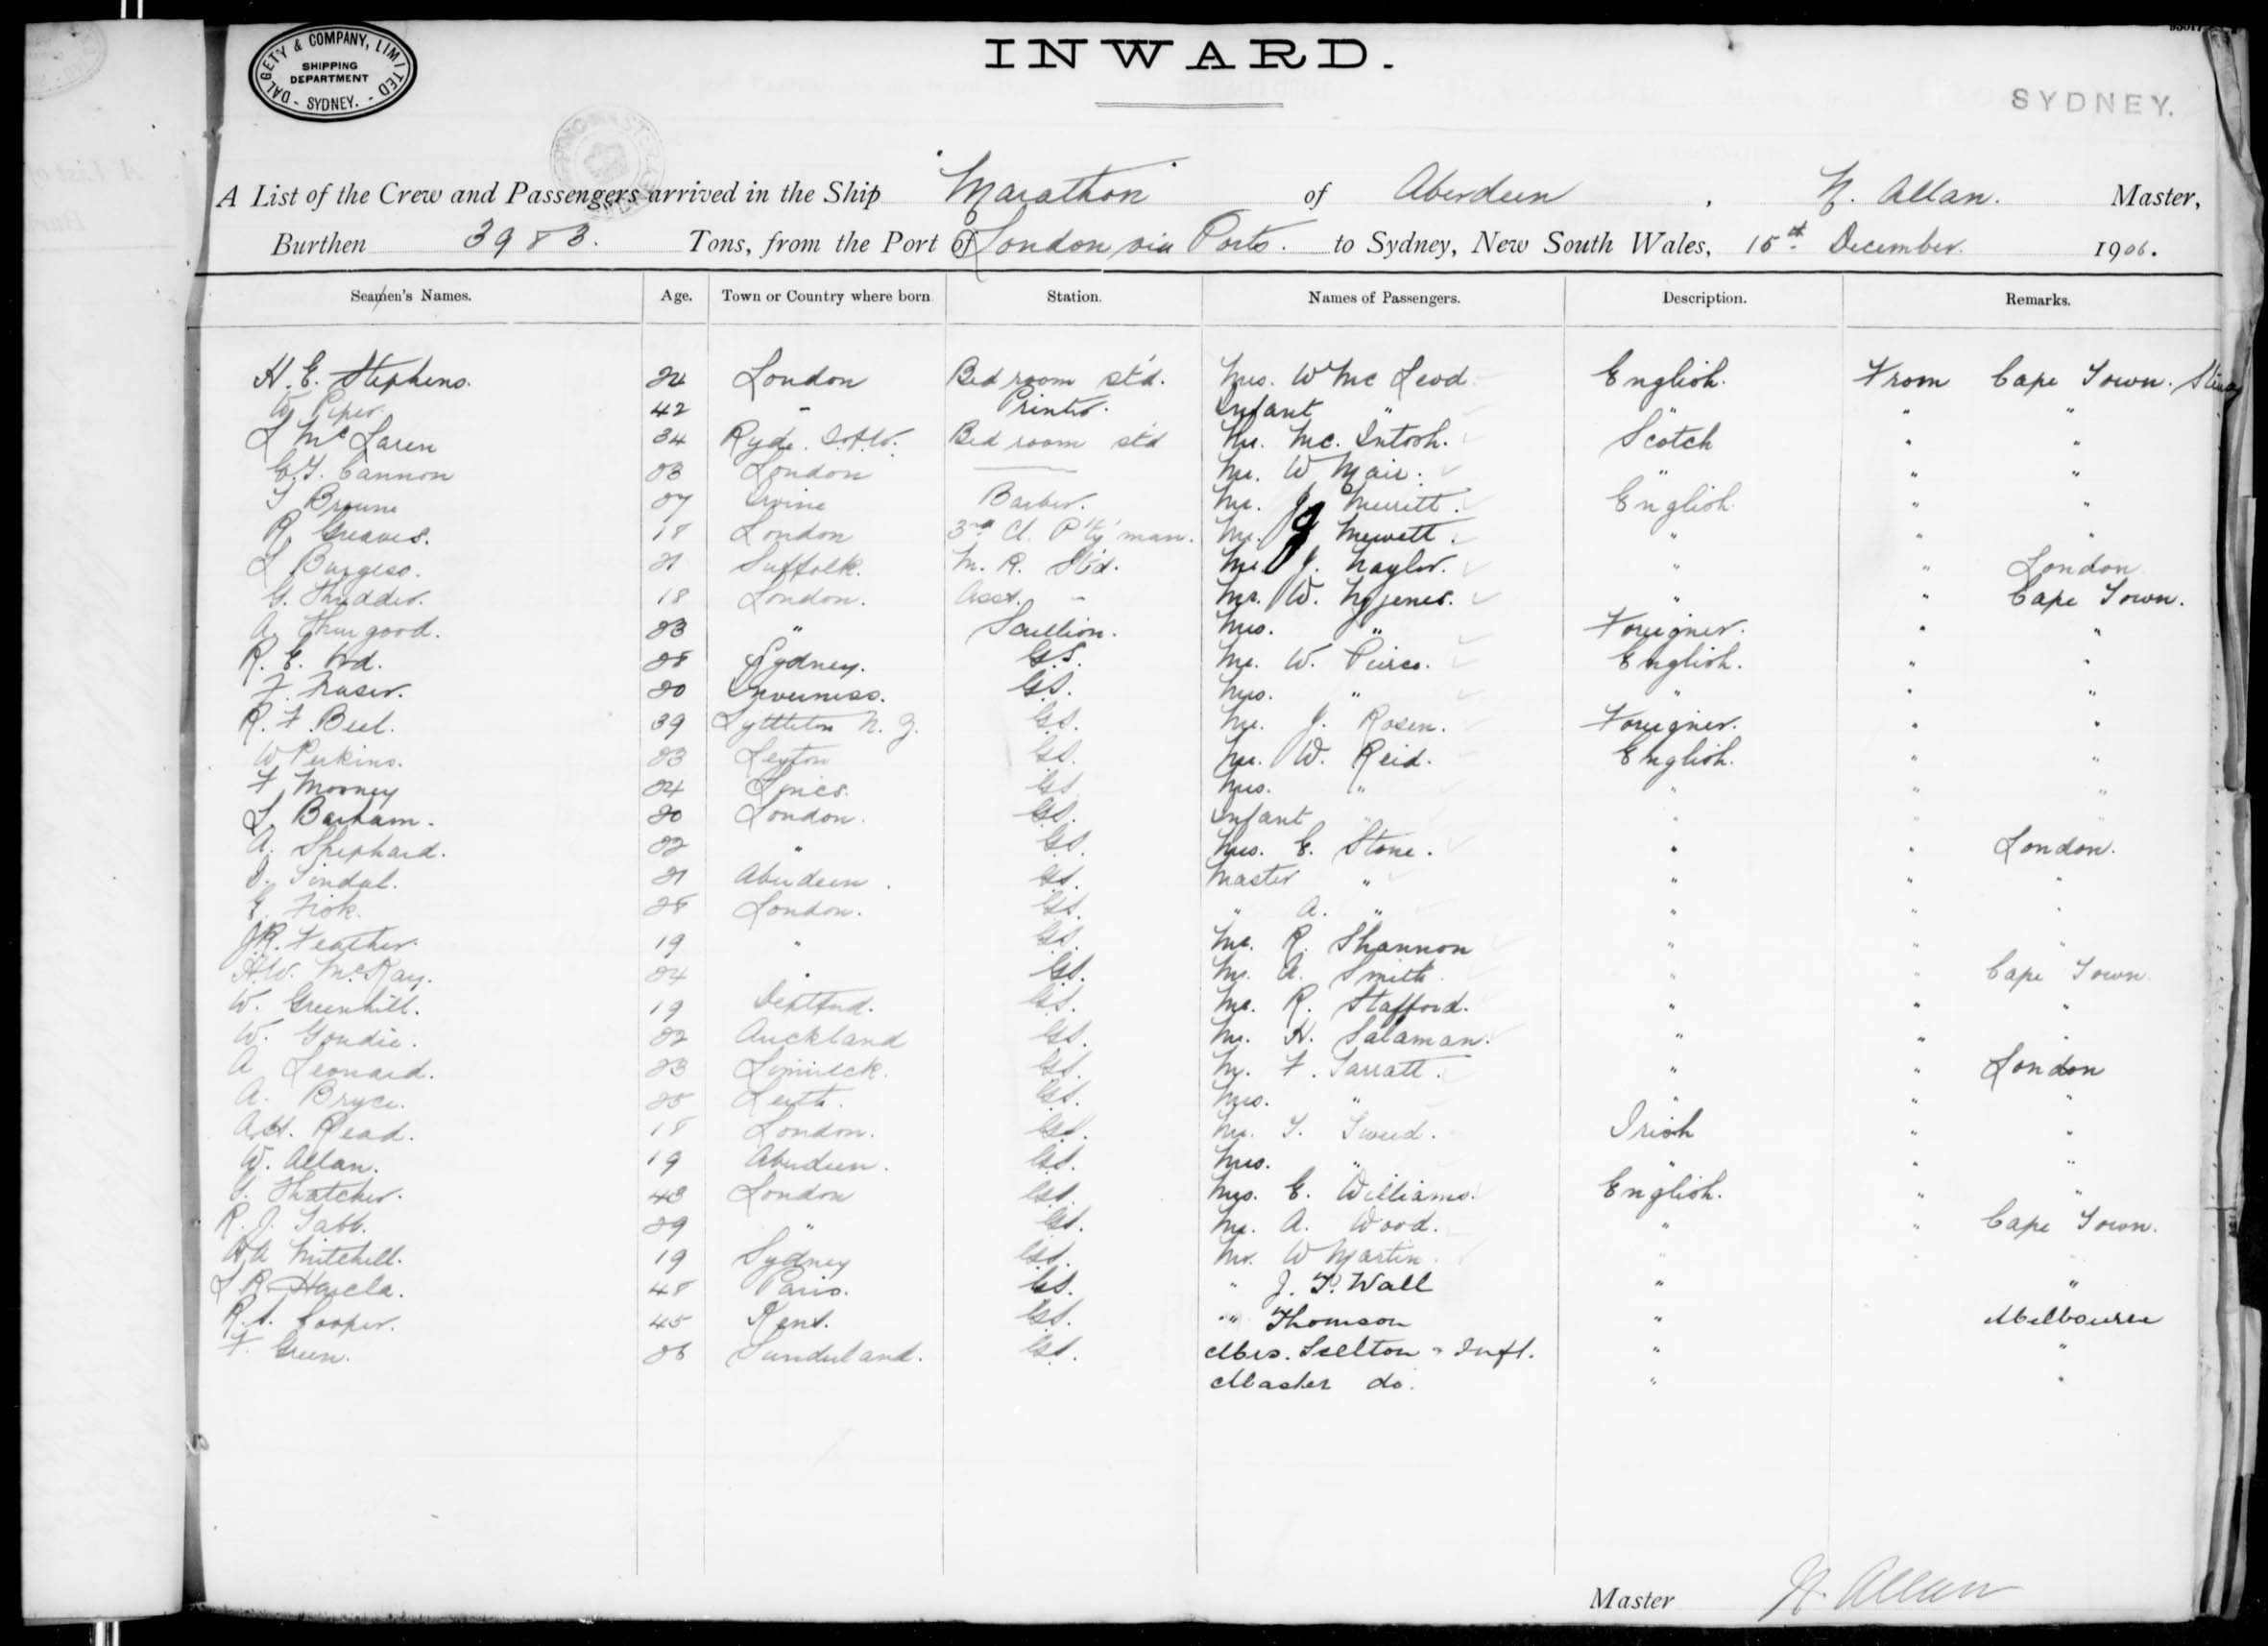 DALGETY & COMPANY, LIMITED
SHIPPING
DEPARTMENT
- SYDNEY. -
INWARD.
SYDNEY.
A List of the Crew and Passengers arrived in the Ship "Marathon" of Aberdeen, N. Allan. Master,
Burthen 3983. Tons, from the Port of London via Ports. to Sydney, New South Wales, 15th December. 1906.
Seamen's Names. Age. Town or Country where born Station. Names of Passengers. Description. Remarks.
H. E. Stephens. 24 London Bed room std. Mrs. W Mc Leod English. From Cape Town.
W. Piper. 42 " Printer. Infant " " " "
L McLaren 34 Ryde Bed room std Mr. Mc. Intosh. Scotch " "
Cannon 23 London Mr. W Mair. " " "
Browne 27 Irvine Barber. Mr. J. Merritt. English. " "
R. Greaves. 18 London 3rd Cl. P'ty man. Mr. J Mewett. " " "
L Burgess. 21 Suffolk. M. R. Std. Mr. J. Naylor. " " London
G. 18 London. Asst. " Mr. W. " " Cape Town.
A. Thurgood. 23 " Scullion. Mrs. " Foreigner. " "
R. E. 28 Sydney. G.S. Mr. W. Pierce. English. " "
F. Fraser. 20 Inverness. G.S. Mrs. " " " "
R. F. Beel. 39 Lyttleton N. Z. G.S. Mr. J. Rosen. Foreigner. " "
W Perkins. 23 Leyton G.S. Mr. W. Reid. English. " "
F. Mooney 24 Lincs. G.S. Mrs. " " " "
L. Barham. 20 London. G.S. Infant " " " "
A. Shephard. 22 " G.S. Mrs. E. Stone. " " London.
Tindal. 21 Aberdeen. G.S. Master " " " "
E. Fisk. 28 London. G.S. " A. " " " "
J R. Feather. 19 " G.S. Mr. R. Shannon " " "
H.W. McKay. 24 " G.S. Mr. A. Smith. " " Cape Town
W. Greenhill. 19 Deptford. G.S. Mr. R. Stafford. " " "
W. Goudie. 22 Auckland G.S. Mr. H. Salaman. " " "
A Leonard. 23 Limirick. G.S. Mr. F. Tarratt. " " London
A. Bryce. 25 Leith. G.S. Mrs. " " " "
A.H. Read. 18 London. G.S. Mr. T. Tweed. Irish " "
W. Allan. 19 Aberdeen. G.S. Mrs. " " " "
G. Thatcher. 43 London G.S. Mrs. E. Williams. English. " "
R. J. Tabb. 29 " G.S. Mr. A. Wood. " " Cape Town.
Mitchell. 19 Sydney G.S. Mr. W Martin. " " "
48 Paris. G.S. " J. P. Wall " "
R. S. Cooper. 45 Kent. G.S. " Thomson " Melbourne
F. Green. 26 Sunderland. G.S. Mrs. & Inft. " "
Master do. " "
Master N. Allan